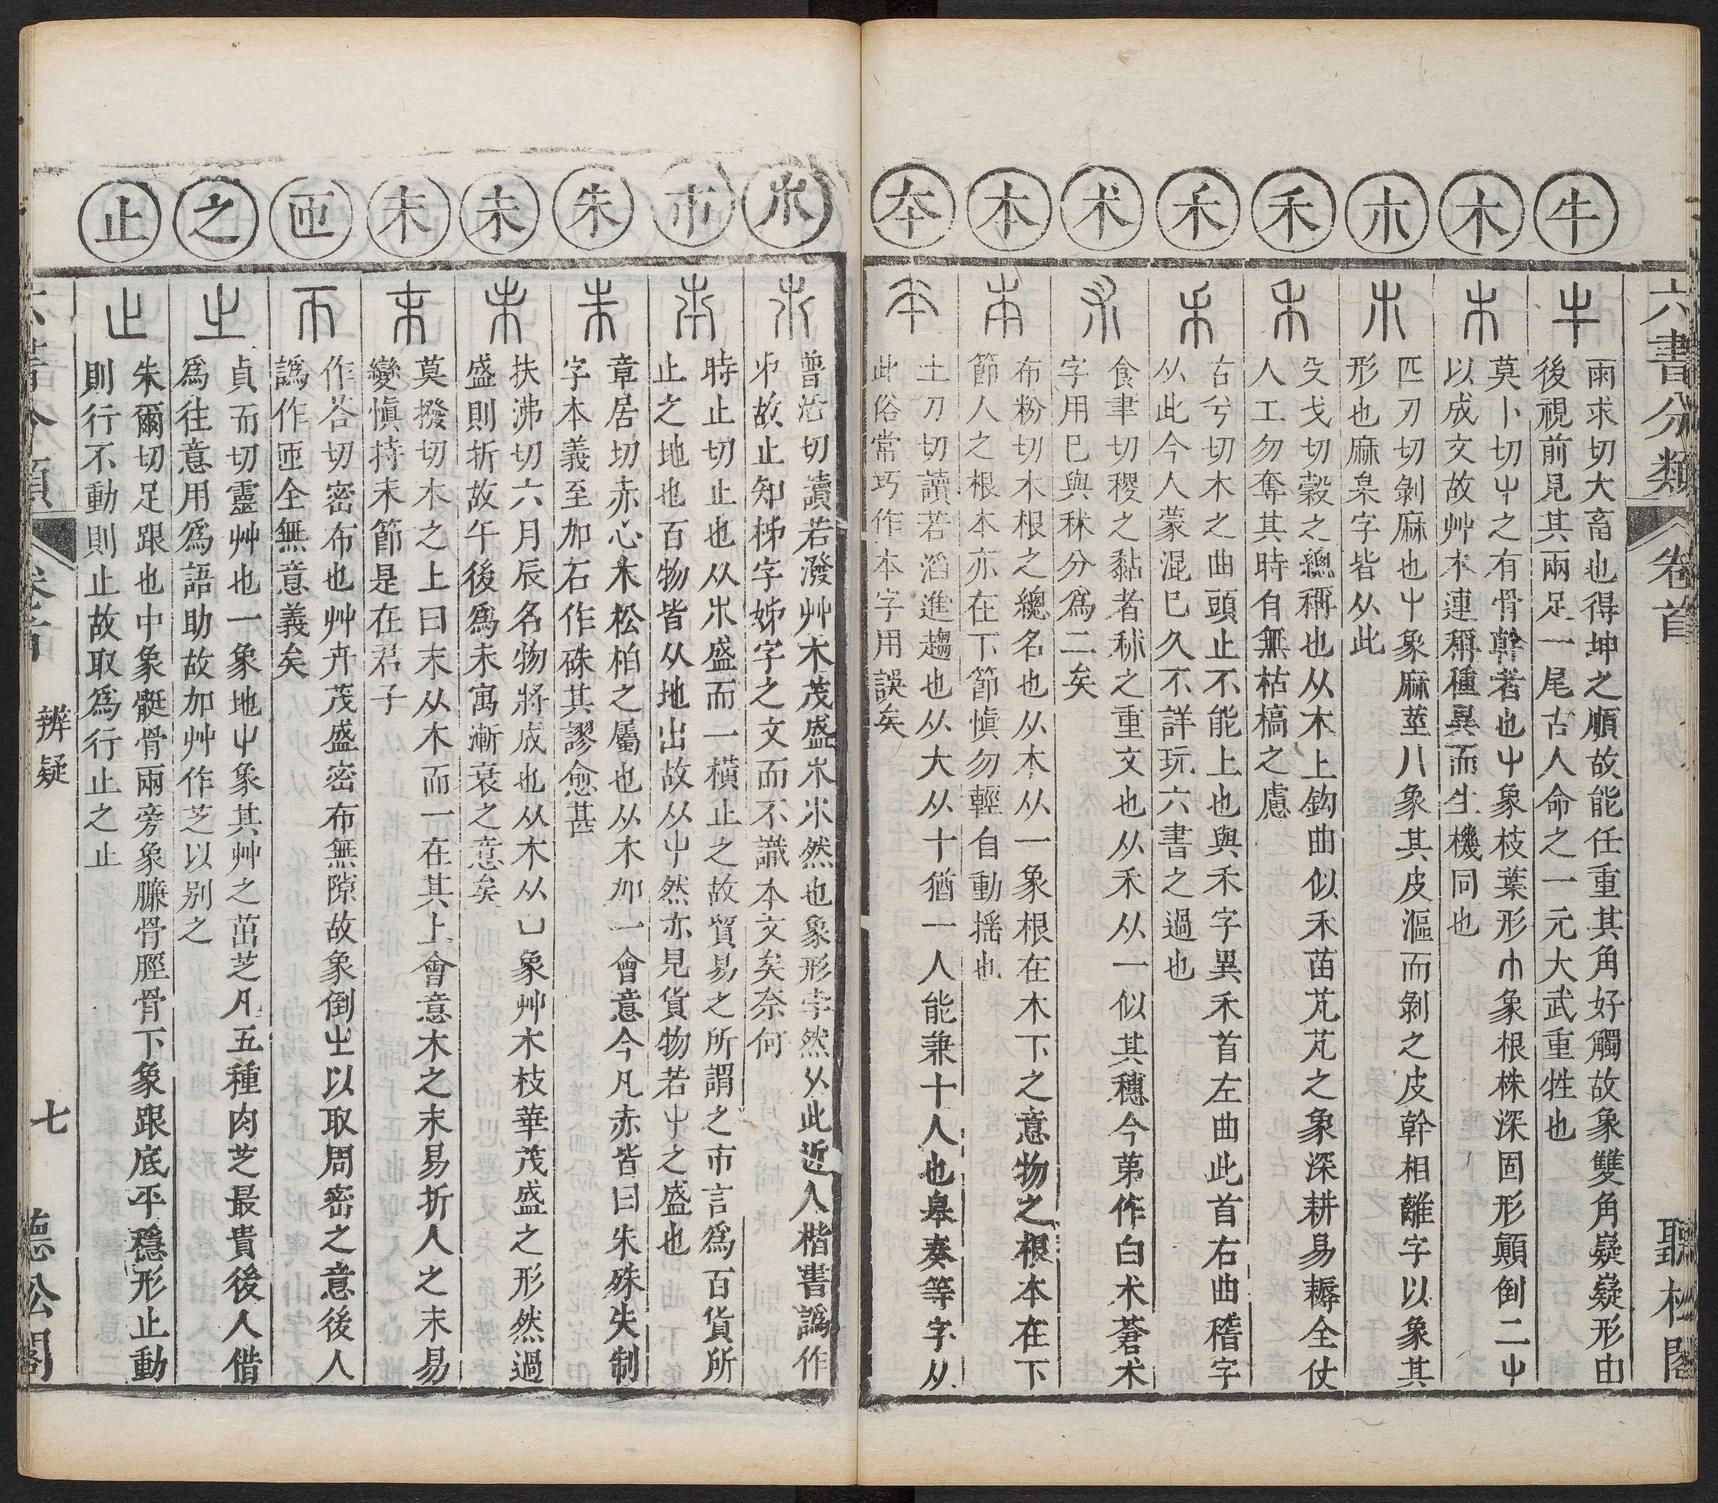 六書分類 卷首 聽松閣
牛 雨求切大畜也得坤之順故能任重其角好觸故象雙角嶷嶷形由
後視前見其兩足一尾古人命之一元大武重牲也
木 莫卜切屮之有骨幹者也屮象枝葉形巾象根株深固形顛倒二屮
以成文故艸木連稱種異而生機同也
𣎳 匹刃切剝麻也屮象麻莖八象其皮漚而剝之皮幹相離字以象其
形也麻枲字皆从此
禾 殳戈切穀之總稱也从木上鈎曲似禾苗芃芃之象深耕易耨全仗
人工勿奪其時自無枯槁之慮
𥝌 古兮切木之曲頭止不能上也與禾字異禾首左曲此首右曲稽字
从此今人蒙混已久不詳玩六書之過也
术 食聿切稷之黏者秫之重文也从禾从一似其穗今苐作白术蒼术
字用巳與秫分爲二矣
本 布粉切木根之總名也从木从一象根在木下之意物之根本在下
節人之根本亦在下節愼勿輕自動揺也
夲 土刀切讀若滔進趨也从大从十猶一人能兼十人也臯奏等字从
此俗常巧作本字用誤矣
𣎵 普活切讀若潑艸木茂盛𣎵𣎵然也象形孛然从此近人楷書譌作
𠂔故止知梯字姊字之文而不識本文矣奈何
巿 時止切止也从𣎵盛而一橫止之故貿易之所謂之市言爲百貨所
止之地也百物皆从地出故从屮然亦見貨物若屮之盛也
朱 章居切赤心木松柏之屬也从木加一會意今凡赤皆曰朱殊失制
字本義至加石作硃其謬愈甚
未 扶沸切六月辰名物將成也从木从凵象艸木枝華茂盛之形然過
盛則折故午後爲未寓漸衰之意矣
末 莫撥切木之上曰末从木而一在其上會意木之末易折人之末易
變愼持末節是在君子
帀 作荅切密布也艸卉茂盛密布無隙故象倒㞢以取周密之意後人
譌作匝全無意義矣
之 貞而切靈艸也一象地屮象其艸之茁芝凡五種肉芝最貴後人借
爲往意用爲語助故加艸作芝以别之
止 朱爾切足跟也中象骽骨兩旁象臁骨脛骨下象跟底平穩形止動
則行不動則止故取爲行止之止
辨疑 七